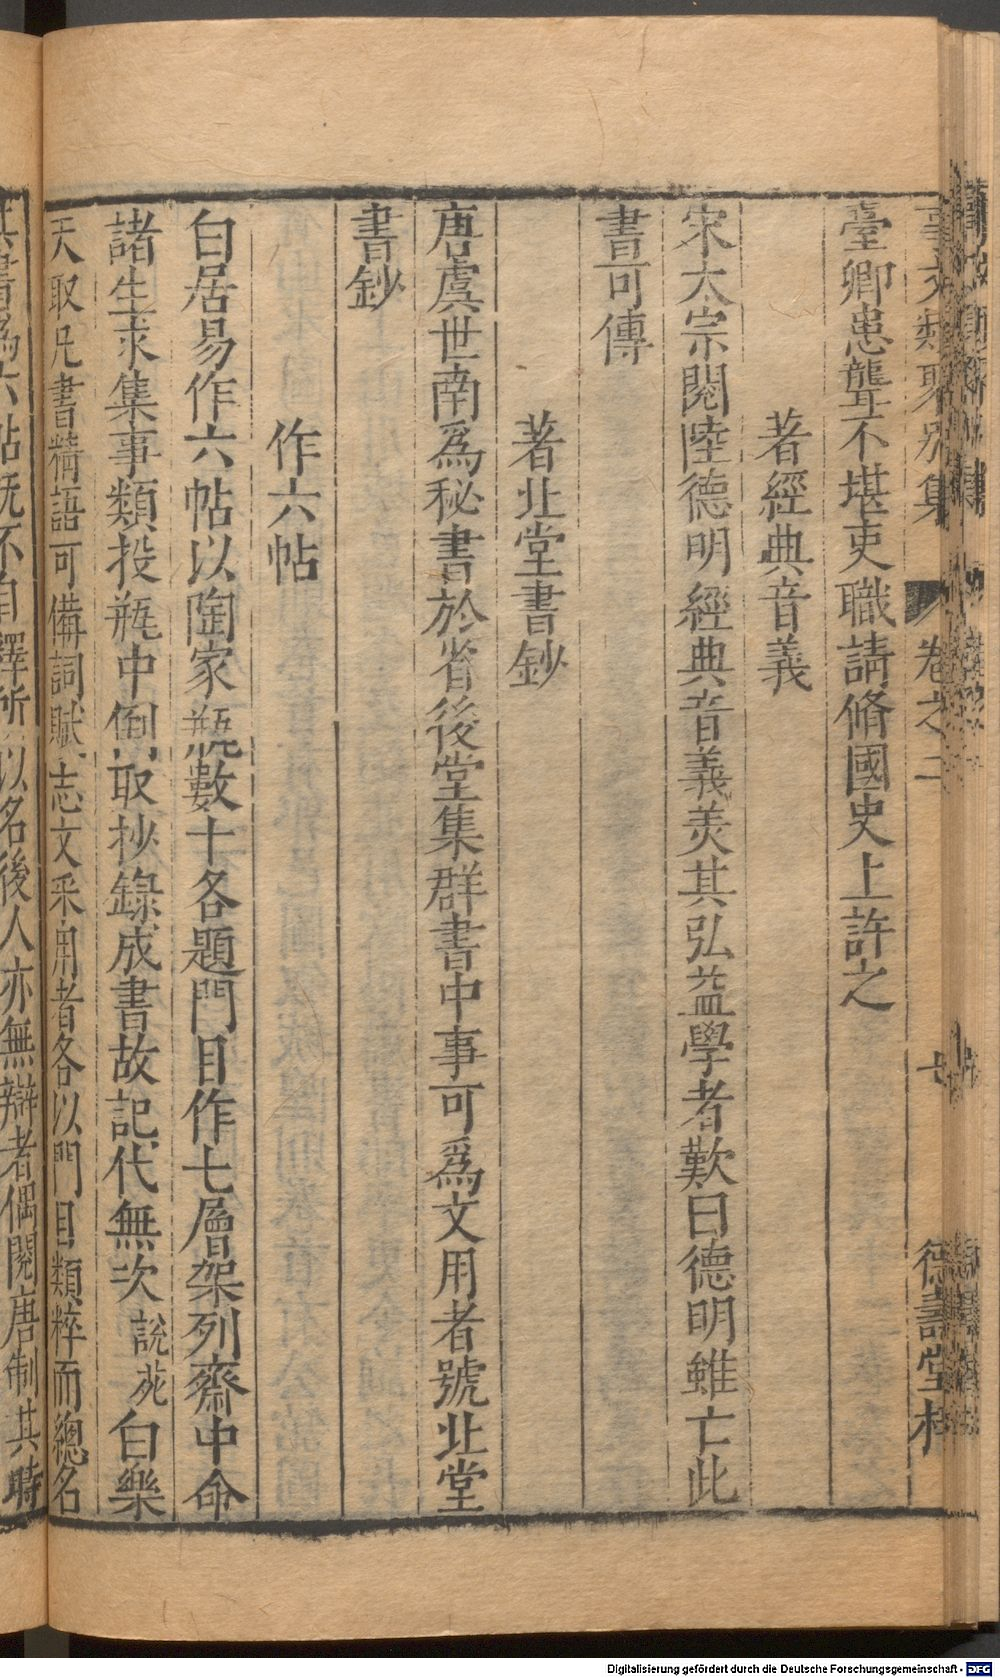 事文類聚別集 卷之二 七 德壽堂梓
臺卿患聾不堪吏職請脩國史上許之
著經典音義
宋太宗閱陸德明經典音義美其弘益學者歎曰德明雖亡此
書可傳
著北堂書鈔
唐虞世南爲秘書於省後堂集群書中事可爲文用者號北堂
書鈔
作六帖
白居易作六帖以陶家瓶數十各題門目作七層架列齋中命
諸生求集事類投瓶中倒取抄錄成書故記代無次說苑白樂
天取凡書精語可備詞賦志文采用者各以門目類粹而總名
其書爲六帖既不自釋所以名後人亦無辯者偶閱唐制其時
Digitalisierung gefördert durch die Deutsche Forschungsgemeinschaft - DFG